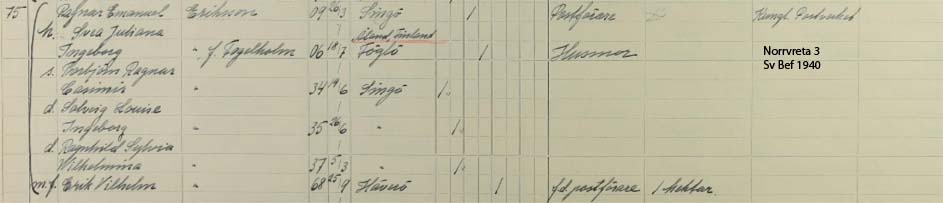 75 Ragnar Emanuel Erikson 09 20/3 Singö 1 Postförare Kungl. Postverket
h. Svea Juliana Åland, Finland
Ingeborg " f. Fagelholm 06 18/7 Föglö 1 Husmor
Norrvreta 3
Sv Bef 1940
s. Torbjörn Ragnar
Casimir " 34 19/6 Singö 1.
d. Solveig Louise
Ingeborg " 35 26/6 " 1.
d. Ragnhild Sylvia
Wilhelmina " 37 5/3 1.
m.f. Erik Vilhelm " 68 25/9 Häverö 1 f.d. postförare 1 hektar.